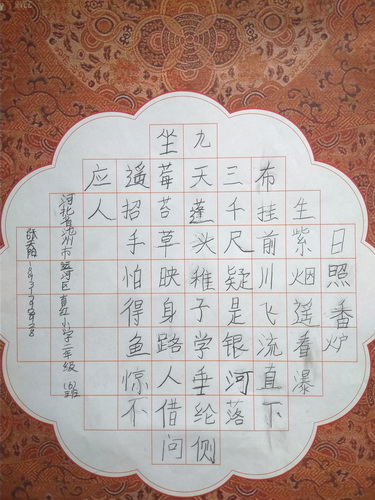 日照香炉
生紫烟遥看瀑
布挂前川飞流直下
三千尺疑是银河落
九天蓬头稚子学垂纶侧
坐莓苔草映身路人借问
遥招手怕得鱼惊不
应人
河北省沧州市运河区育红小学二年级(6)班